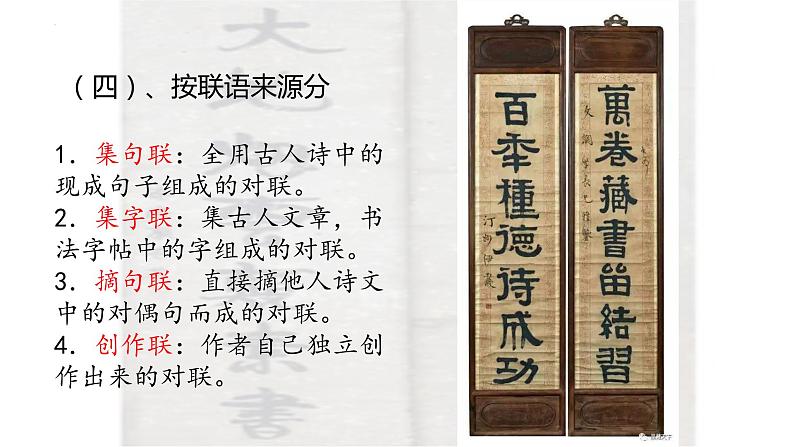 （四）、按联语来源分
1. 集句联：全用古人诗中的
现成句子组成的对联。
2. 集字联：集古人文章，书
法字帖中的字组成的对联。
3. 摘句联：直接摘他人诗文
中的对偶句而成的对联。
4. 创作联：作者自己独立创
作出来的对联。
萬卷藏書
結習
百年種德待成功